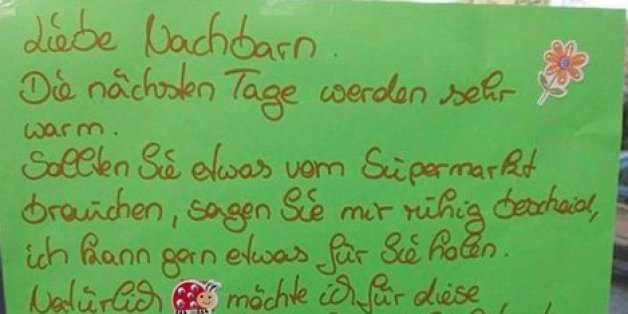 Liebe Nachbarn.
Die nächsten Tage werden sehr
warm.
Sollten Sie etwas vom Supermarkt
brauchen, sagen Sie mir ruhig bescheid,
ich kann gern etwas für Sie holen.
Natürlich möchte ich für diese